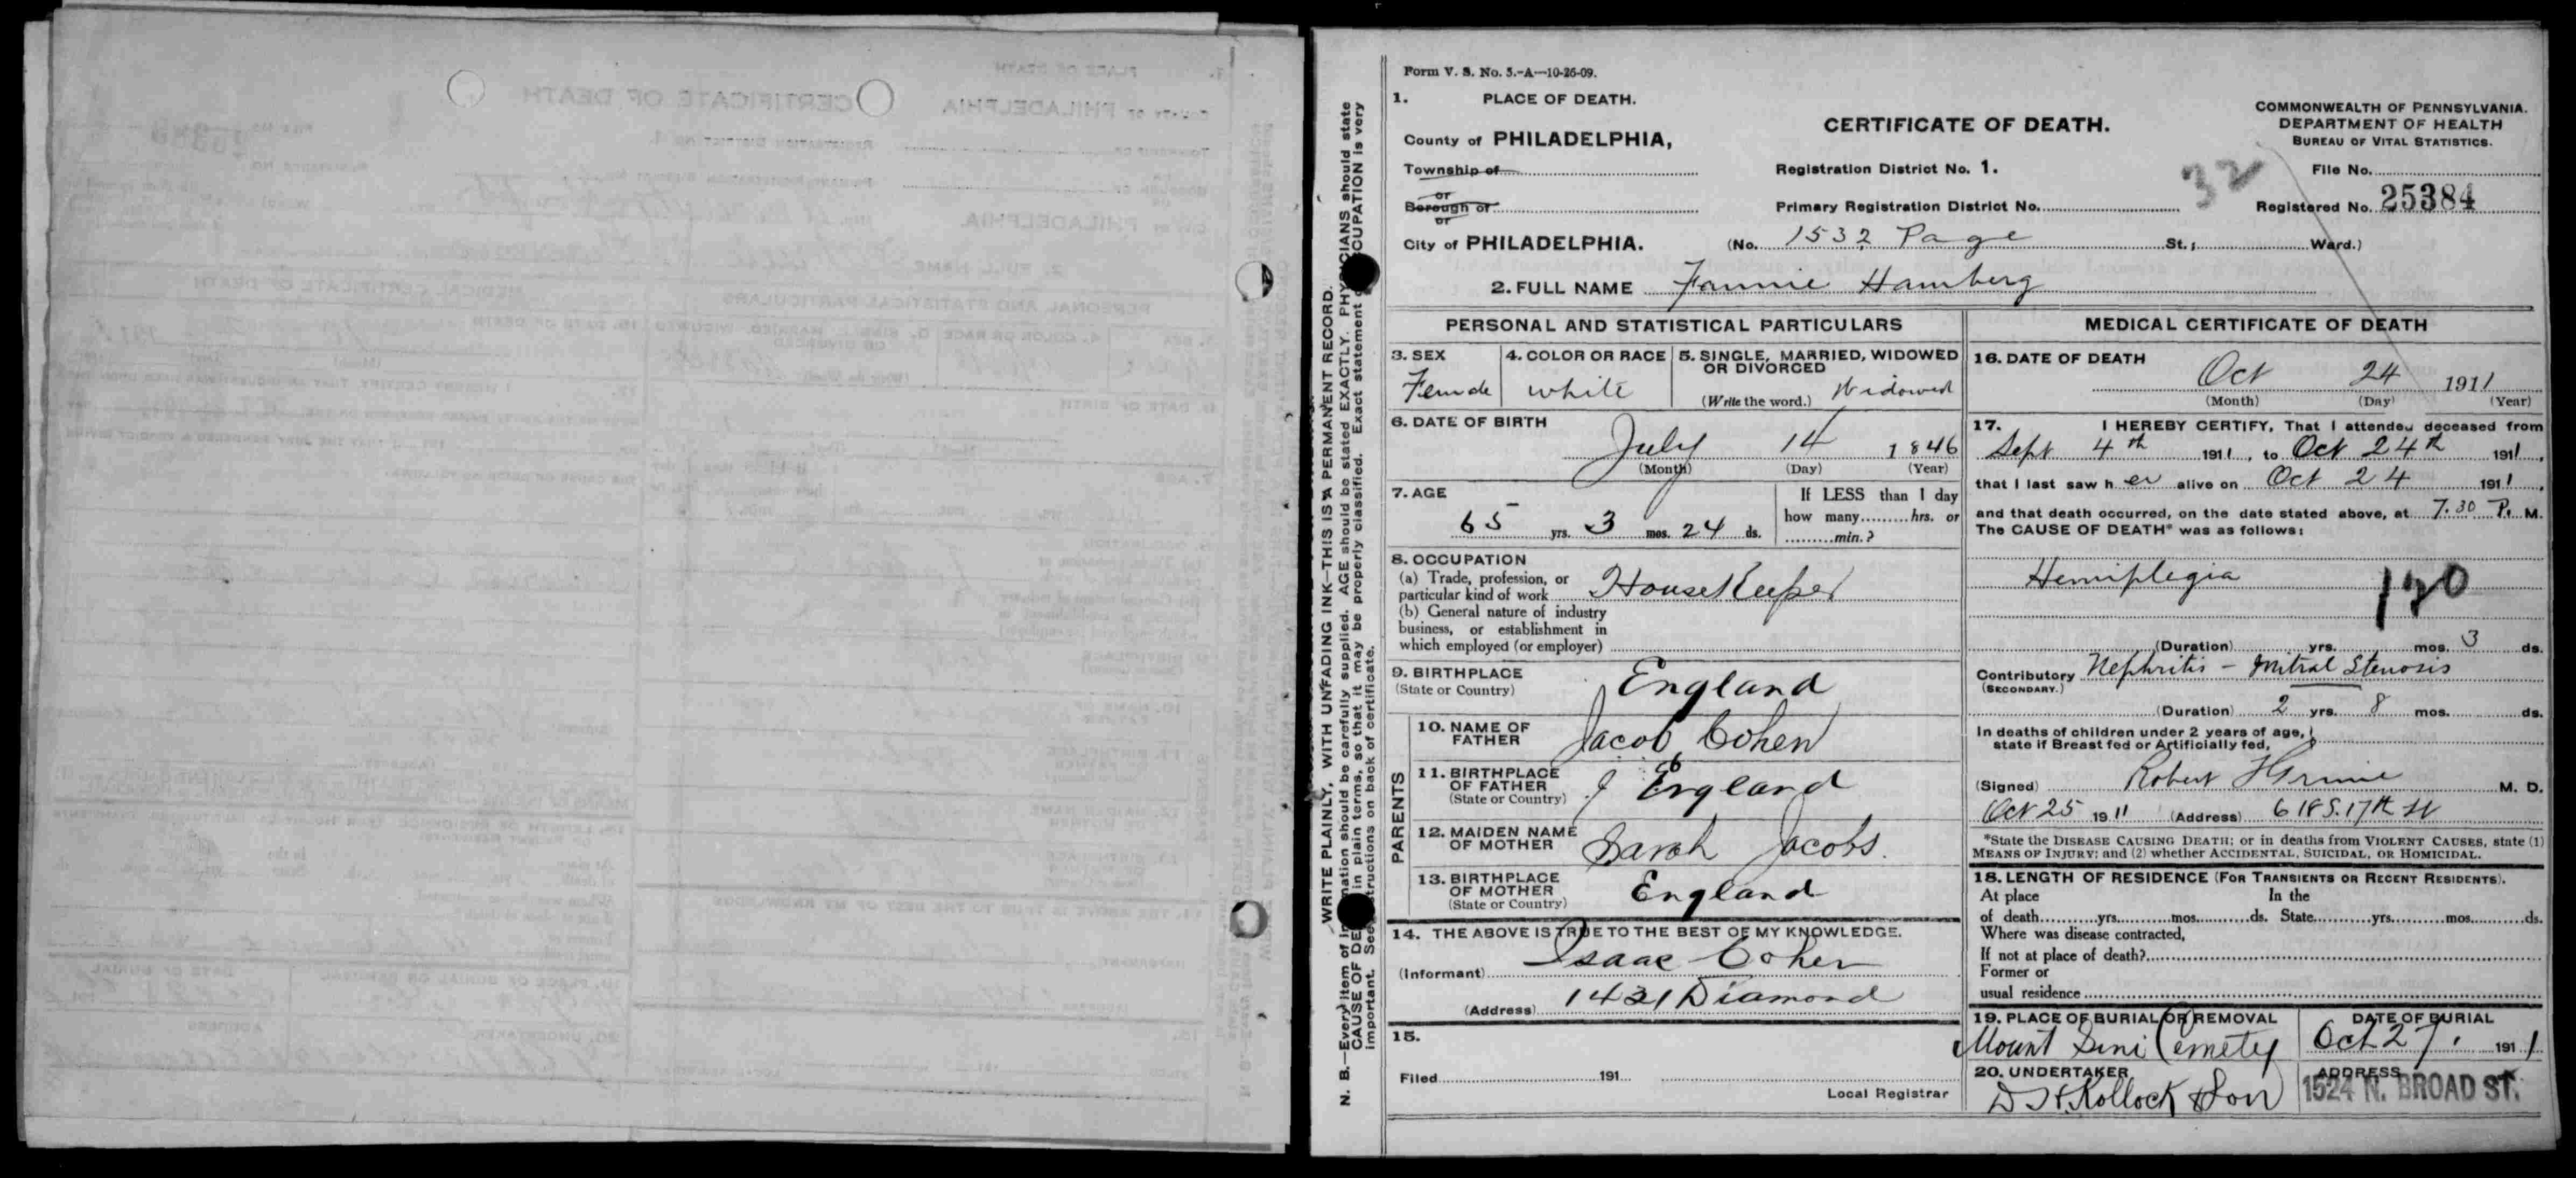 Form V. S. No. 5.-A—10-26-09.
1. PLACE OF DEATH.
County of PHILADELPHIA,
Township of
or
Borough of
or
City of PHILADELPHIA.
CERTIFICATE OF DEATH.
Registration District No. 1.
Primary Registration District No.
(No. 1532 Page St.; Ward.)
COMMONWEALTH OF PENNSYLVANIA.
DEPARTMENT OF HEALTH
BUREAU OF VITAL STATISTICS.
32
File No.
Registered No. 25384
2. FULL NAME Fannie Hamberg
PERSONAL AND STATISTICAL PARTICULARS
3. SEX
Female
4. COLOR OR RACE
white
5. SINGLE, MARRIED, WIDOWED
OR DIVORCED
(Write the word.) Widowed
6. DATE OF BIRTH
July 14 1846
(Month) (Day) (Year)
7. AGE
65 yrs. 3 mos. 24 ds.
If LESS than 1 day
how many hrs. or
min.?
8. OCCUPATION
(a) Trade, profession, or
particular kind of work HouseKeeper
(b) General nature of industry
business, or establishment in
which employed (or employer)
9. BIRTHPLACE
(State or Country) England
PARENTS
10. NAME OF
FATHER Jacob Cohen
11. BIRTHPLACE
OF FATHER
(State or Country) England
12. MAIDEN NAME
OF MOTHER Sarah Jacobs.
13. BIRTHPLACE
OF MOTHER
(State or Country) England
14. THE ABOVE IS TRUE TO THE BEST OF MY KNOWLEDGE.
(Informant) Isaac Cohen
(Address) 1431 Diamond
15.
Filed 191
Local Registrar
MEDICAL CERTIFICATE OF DEATH
16. DATE OF DEATH
Oct 24 1911
(Month) (Day) (Year)
17. I HEREBY CERTIFY, That I attended deceased from
Sept 4th 1911, to Oct 24th 1911,
that I last saw her alive on Oct 24 1911,
and that death occurred, on the date stated above, at 7.30 P. M.
The CAUSE OF DEATH* was as follows:
Hemiplegia
120
(Duration) yrs. mos. 3 ds.
Contributory Nephritis - Mitral Stenosis
(SECONDARY.)
(Duration) 2 yrs. 8 mos. ds.
In deaths of children under 2 years of age,
state if Breast fed or Artificially fed,
(Signed) Robert M. D.
Oct 25 1911 (Address) 618 S. 17th St
*State the DISEASE CAUSING DEATH; or in deaths from VIOLENT CAUSES, state (1)
MEANS OF INJURY; and (2) whether ACCIDENTAL, SUICIDAL, OR HOMICIDAL.
18. LENGTH OF RESIDENCE (FOR TRANSIENTS OR RECENT RESIDENTS).
At place In the
of death yrs. mos. ds. State yrs. mos. ds.
Where was disease contracted,
If not at place of death?
Former or
usual residence
19. PLACE OF BURIAL OR REMOVAL
Mount Sini Cemetey
DATE OF BURIAL
Oct 27. 1911
20. UNDERTAKER
D H. Kollock & Son
ADDRESS
1524 N. BROAD ST.
WRITE PLAINLY, WITH UNFADING INK—THIS IS A PERMANENT RECORD.
N. B.—Every item of information should be carefully supplied. AGE should be stated EXACTLY. PHYSICIANS should state
CAUSE OF DEATH in plain terms, so that it may be properly classified. Exact statement of OCCUPATION is very
important. See instructions on back of certificate.